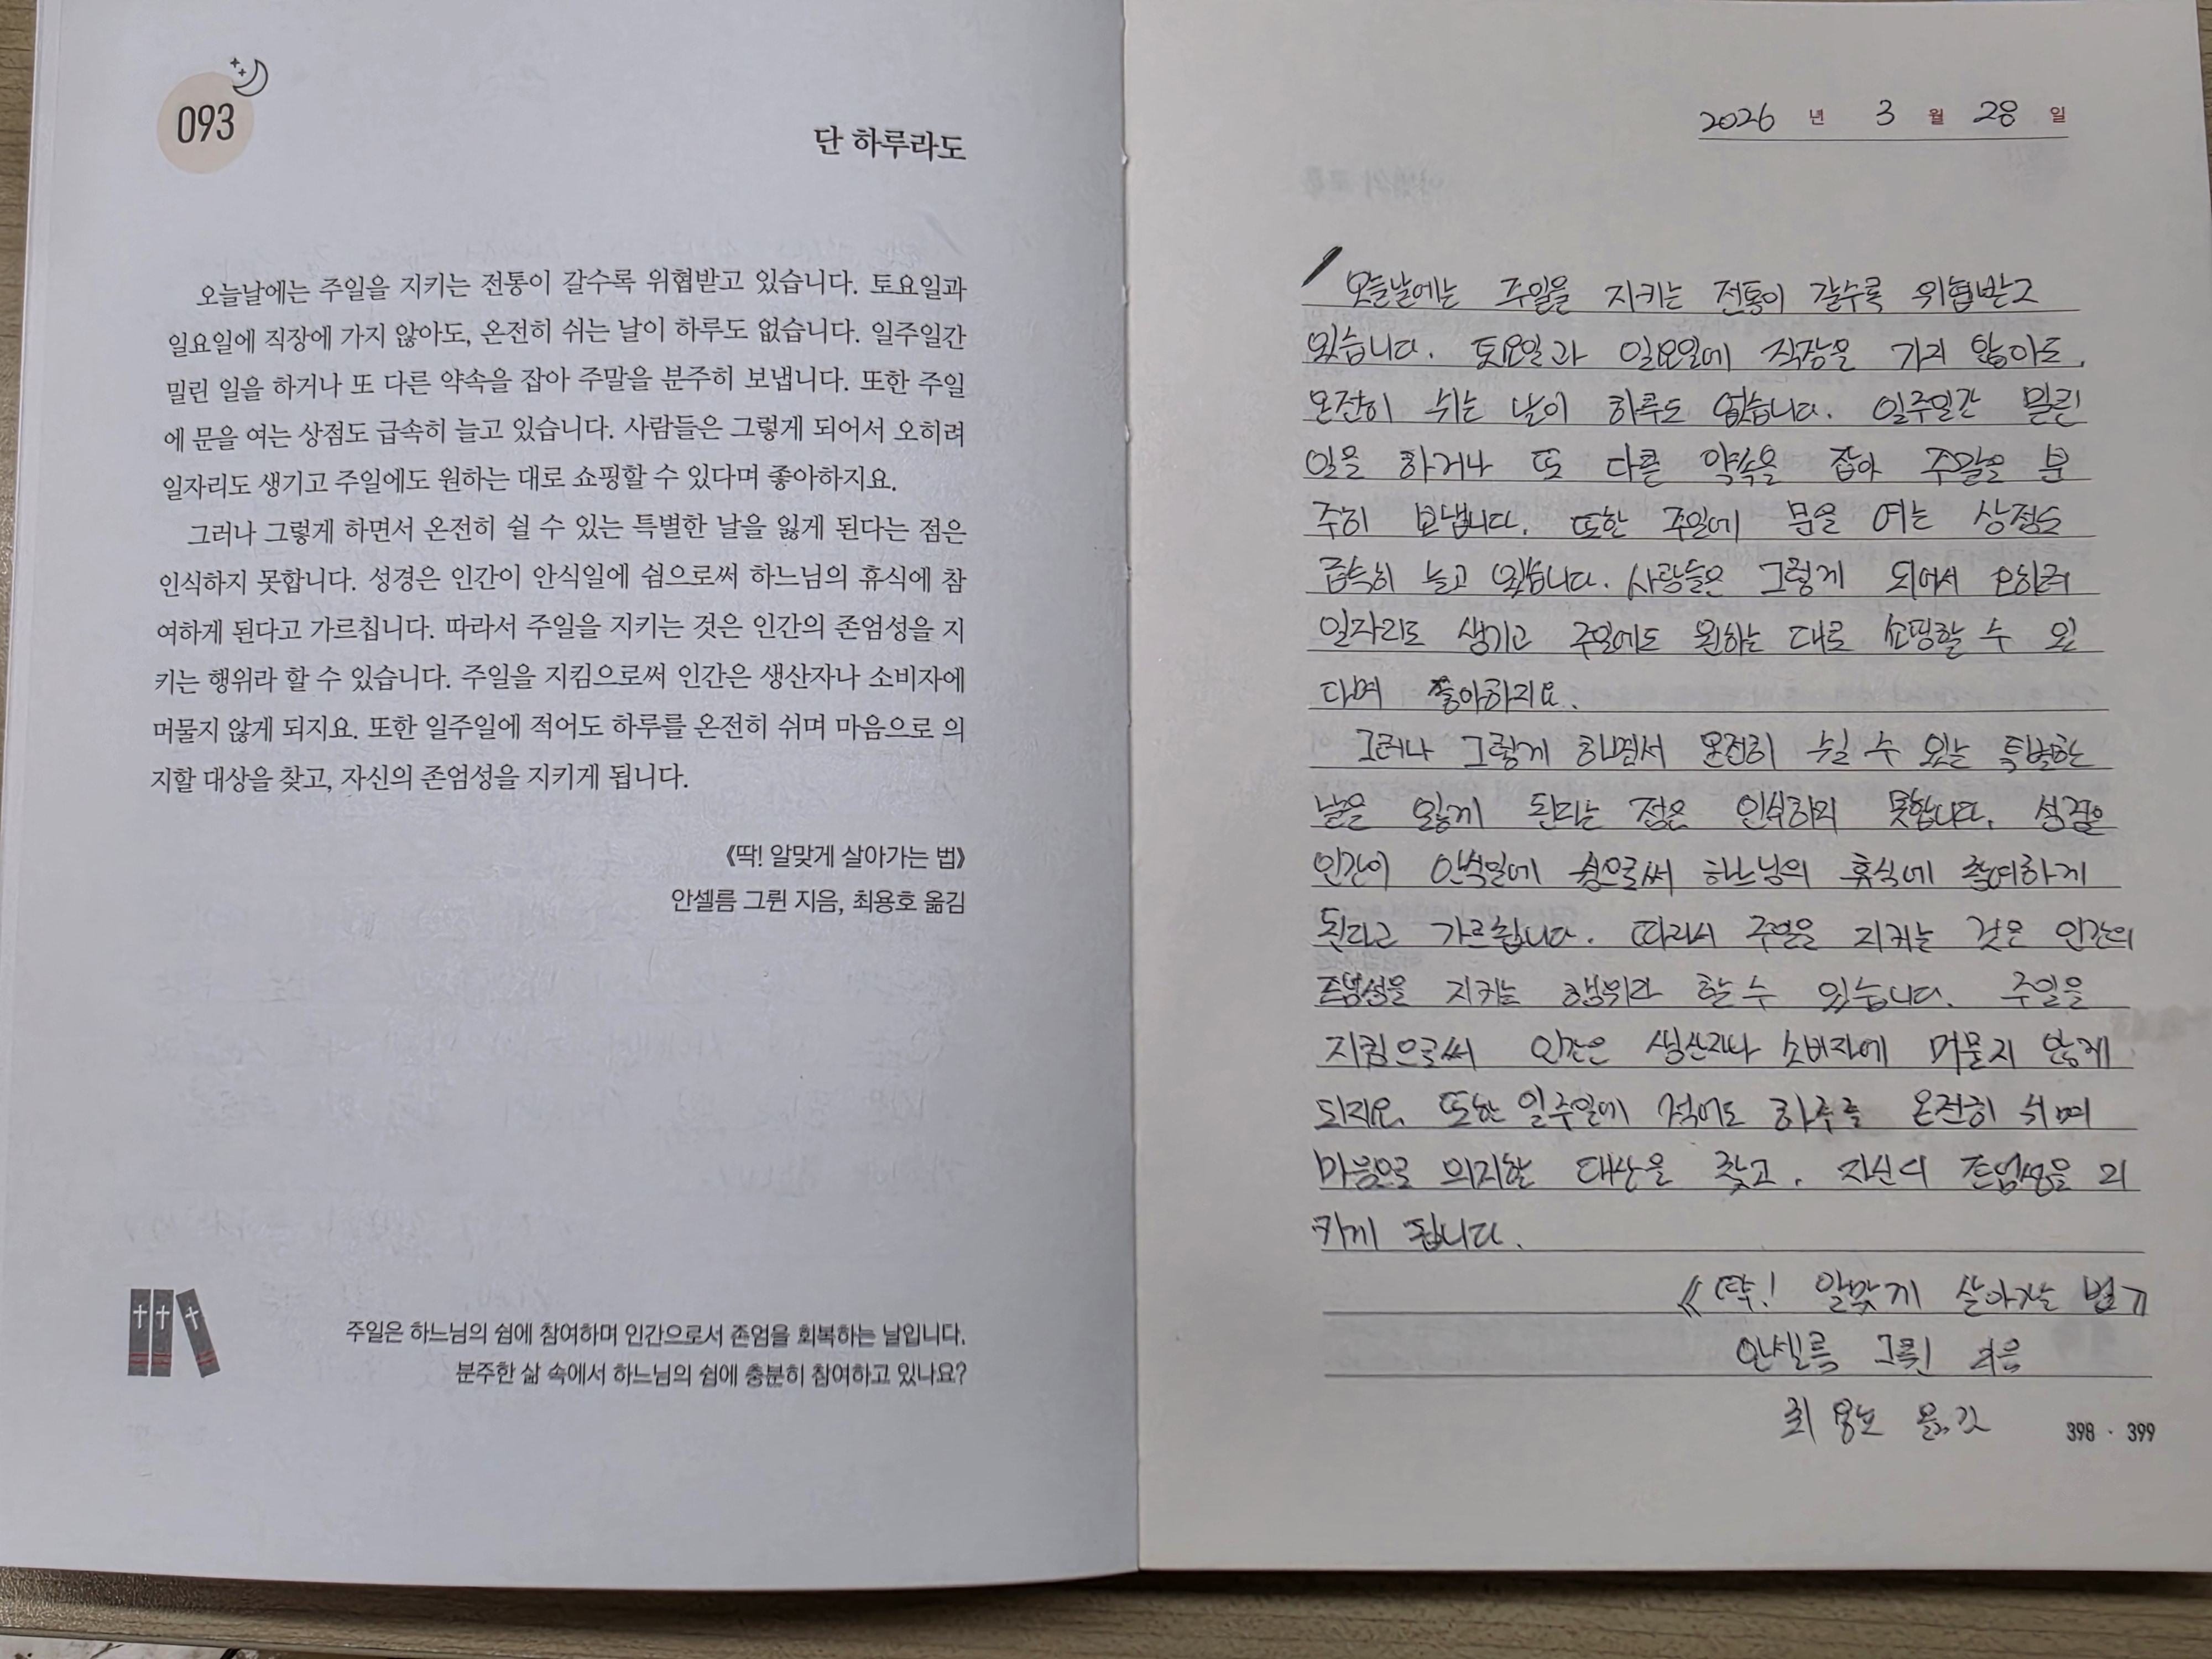 093
단 하루라도
오늘날에는 주일을 지키는 전통이 갈수록 위협받고 있습니다. 토요일과
일요일에 직장에 가지 않아도, 온전히 쉬는 날이 하루도 없습니다. 일주일간
밀린 일을 하거나 또 다른 약속을 잡아 주말을 분주히 보냅니다. 또한 주일
에 문을 여는 상점도 급속히 늘고 있습니다. 사람들은 그렇게 되어서 오히려
일자리도 생기고 주일에도 원하는 대로 쇼핑할 수 있다며 좋아하지요.
그러나 그렇게 하면서 온전히 쉴 수 있는 특별한 날을 잃게 된다는 점은
인식하지 못합니다. 성경은 인간이 안식일에 쉼으로써 하느님의 휴식에 참
여하게 된다고 가르칩니다. 따라서 주일을 지키는 것은 인간의 존엄성을 지
키는 행위라 할 수 있습니다. 주일을 지킴으로써 인간은 생산자나 소비자에
머물지 않게 되지요. 또한 일주일에 적어도 하루를 온전히 쉬며 마음으로 의
지할 대상을 찾고, 자신의 존엄성을 지키게 됩니다.
《딱! 알맞게 살아가는 법》
안셀름 그륀 지음, 최용호 옮김
주일은 하느님의 쉼에 참여하며 인간으로서 존엄을 회복하는 날입니다.
분주한 삶 속에서 하느님의 쉼에 충분히 참여하고 있나요?
2026 년 3 월 28 일
오늘날에는 주일을 지키는 전통이 갈수록 위협받고
있습니다. 토요일과 일요일에 직장을 가지 않아도,
온전히 쉬는 날이 하루도 없습니다. 일주일간 밀린
일을 하거나 또 다른 약속을 잡아 주말을 분
주히 보냅니다. 또한 주일에 문을 여는 상점도
급속히 늘고 있습니다. 사람들은 그렇게 되어서 오히려
일자리도 생기고 주일에도 원하는 대로 쇼핑할 수 있
다며 좋아하지요.
그러나 그렇게 하면서 온전히 쉴 수 있는 특별한
날을 잃게 된다는 점은 인식하지 못합니다. 성경은
인간이 안식일에 쉼으로써 하느님의 휴식에 참여하게
된다고 가르칩니다. 따라서 주일을 지키는 것은 인간의
존엄성을 지키는 행위라 할 수 있습니다. 주일을
지킴으로써 인간은 생산자나 소비자에 머물지 않게
되지요. 또한 일주일에 적어도 하루를 온전히 쉬며
마음으로 의지할 대상을 찾고, 자신의 존엄성을 지
키게 됩니다.
《딱! 알맞게 살아가는 법》
안셀름 그륀 지음
최용호 옮김
398 · 399